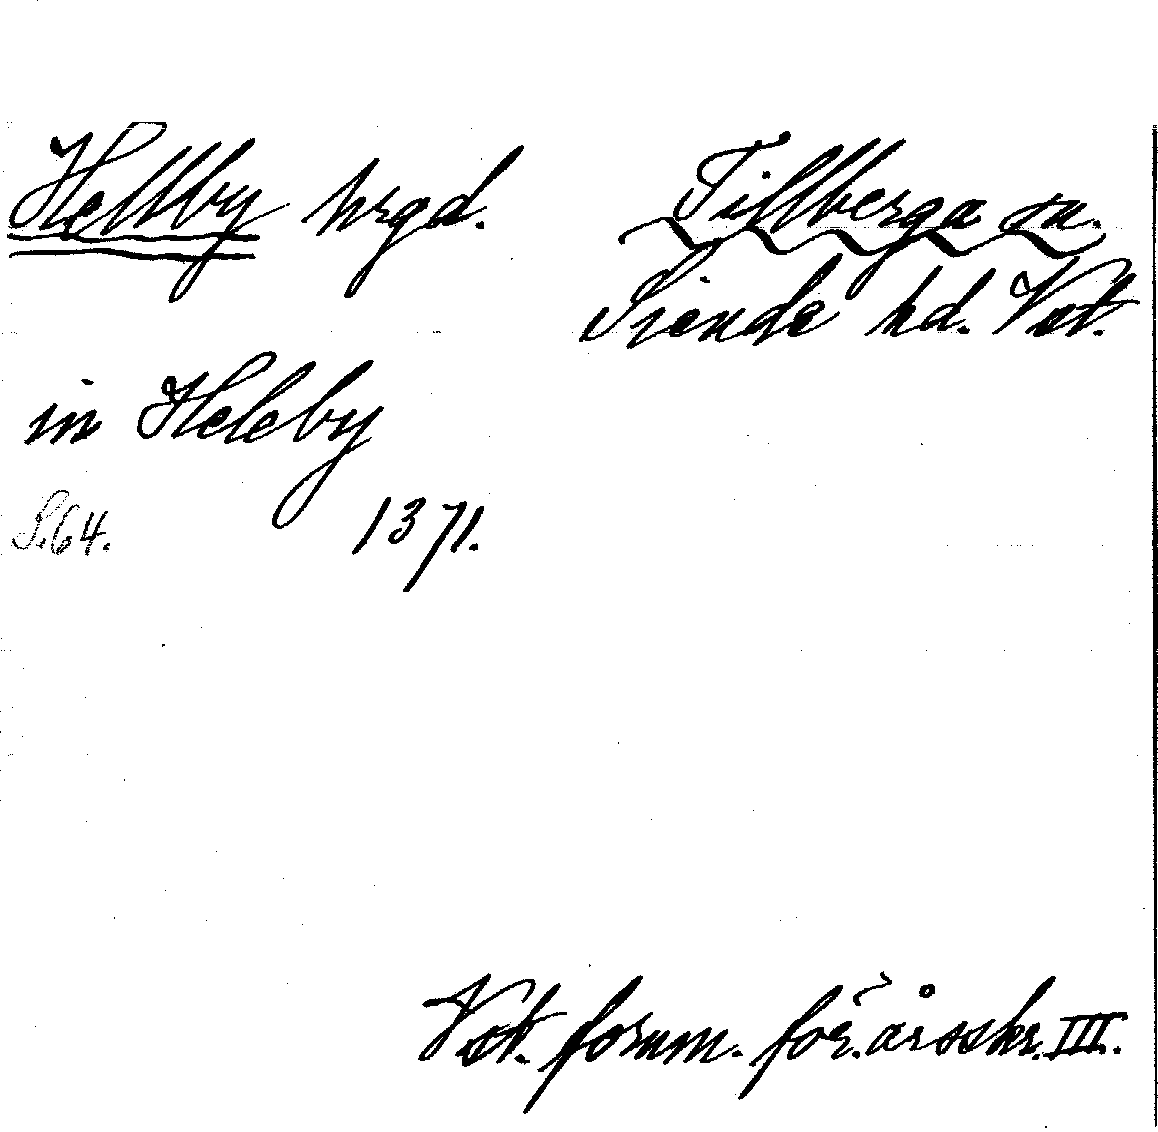 Hellby hrgd. Tillberga sn.
Siende hd. Vst.
in Heleby
S.64. 1371.
Vst. fornm. för. årsskr. III.